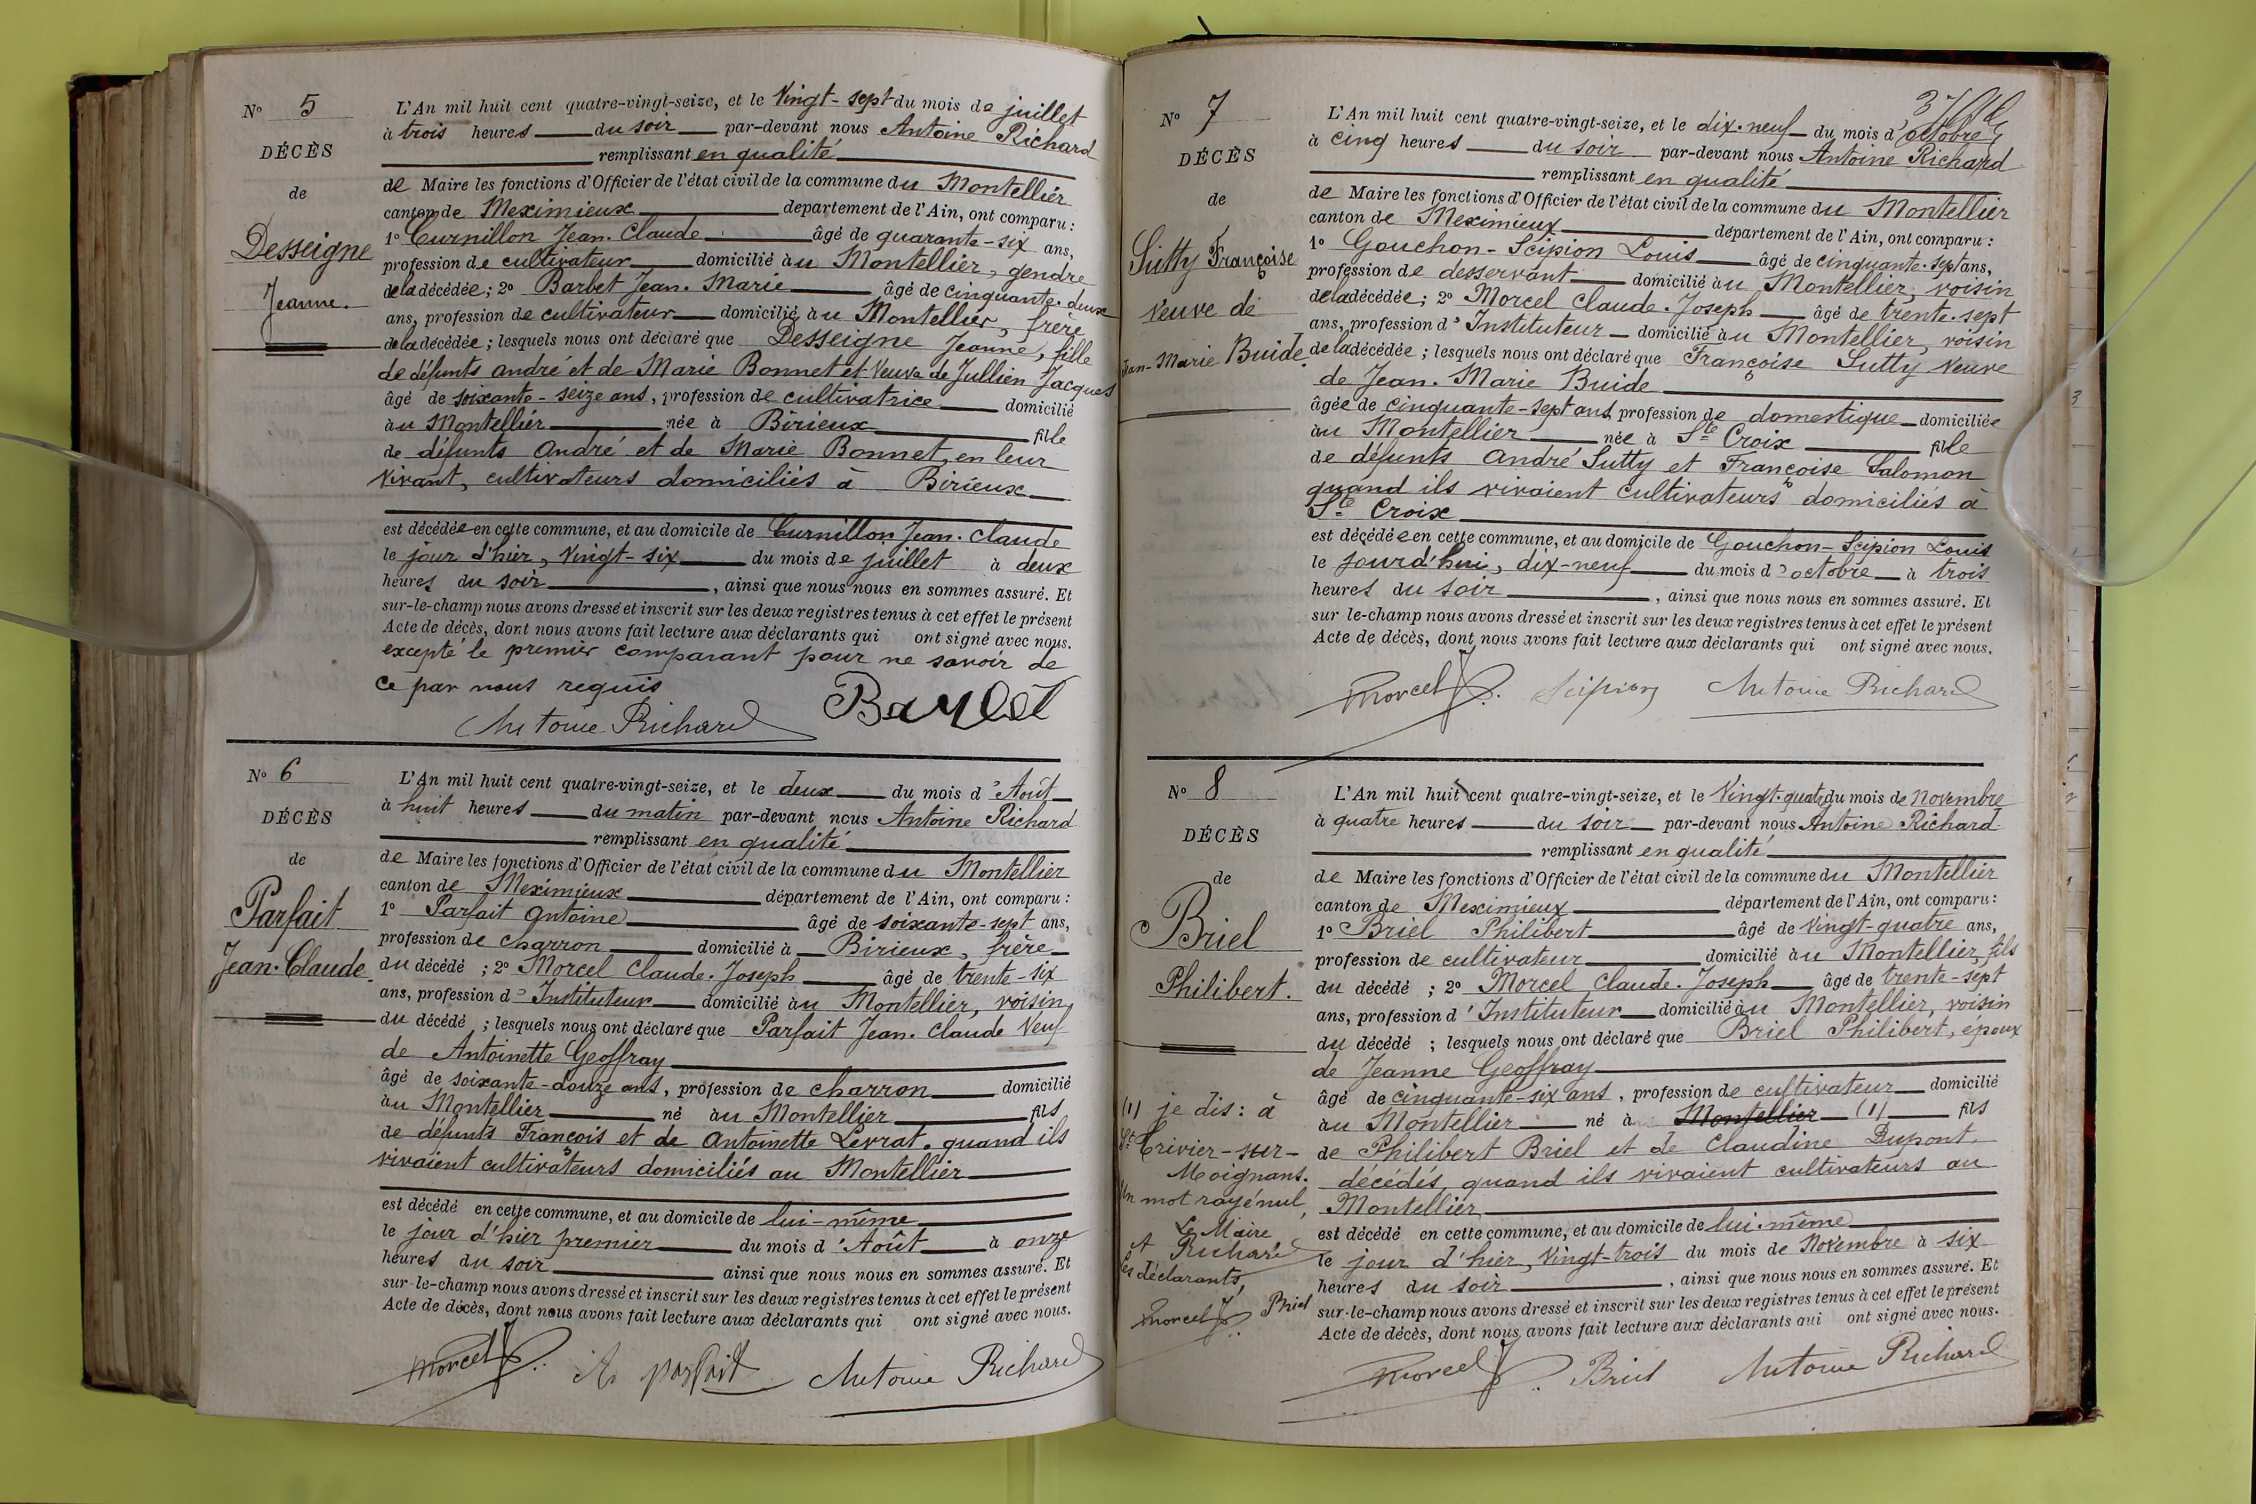 N° 5
DÉCÈS
de
Desseigne
Jeanne.
L'An mil huit cent quatre-vingt-seize, et le vingt-sept du mois de juillet
à trois heures du soir par-devant nous Antoine Richard
remplissant en qualité
de Maire les fonctions d'Officier de l'état civil de la commune du Montellier
canton de Meximieux département de l'Ain, ont comparu :
1° Curnillon Jean-Claude âgé de quarante-six ans,
profession de cultivateur domicilié au Montellier, gendre
de la décédée ; 2° Barbet Jean-Marie âgé de cinquante-deux
ans, profession de cultivateur domicilié au Montellier, frère
de la décédée ; lesquels nous ont déclaré que Desseigne Jeanne, fille
de défunts André et de Marie Bonnet et Veuve de Jullien Jacques
âgé de soixante-seize ans, profession de cultivatrice domicilié
au Montellier née à Birieux fille
de défunts André et de Marie Bonnet, en leur
vivant, cultivateurs domiciliés à Birieux
est décédée en cette commune, et au domicile de Curnillon Jean-Claude
le jour d'hier, vingt-six du mois de juillet à deux
heures du soir, ainsi que nous nous en sommes assuré. Et
sur-le-champ nous avons dressé et inscrit sur les deux registres tenus à cet effet le présent
Acte de décès, dont nous avons fait lecture aux déclarants qui ont signé avec nous.
excepté le premier comparant pour ne savoir de
ce par nous requis
Antoine Richard Barbet
N° 6
DÉCÈS
de
Parfait
Jean-Claude
L'An mil huit cent quatre-vingt-seize, et le deux du mois d'Août
à huit heures du matin par-devant nous Antoine Richard
remplissant en qualité
de Maire les fonctions d'Officier de l'état civil de la commune du Montellier
canton de Meximieux département de l'Ain, ont comparu :
1° Parfait Antoine âgé de soixante-sept ans,
profession de charron domicilié à Birieux, frère
du décédé ; 2° Morcel Claude-Joseph âgé de trente-six
ans, profession d'Instituteur domicilié au Montellier, voisin
du décédé ; lesquels nous ont déclaré que Parfait Jean-Claude Veuf
de Antoinette Geoffray
âgé de soixante-douze ans, profession de charron domicilié
au Montellier né au Montellier fils
de défunts François et de Antoinette Levrat, quand ils
vivaient cultivateurs domiciliés au Montellier
est décédé en cette commune, et au domicile de lui-même
le jour d'hier premier du mois d'Août à onze
heures du soir ainsi que nous nous en sommes assuré. Et
sur-le-champ nous avons dressé et inscrit sur les deux registres tenus à cet effet le présent
Acte de décès, dont nous avons fait lecture aux déclarants qui ont signé avec nous.
Morcel parfait Antoine Richard
N° 7
DÉCÈS
de
Sutty Françoise
Veuve de
Jean-Marie Buide.
L'An mil huit cent quatre-vingt-seize, et le dix-neuf du mois d'octobre
à cinq heures du soir par-devant nous Antoine Richard
remplissant en qualité
de Maire les fonctions d'Officier de l'état civil de la commune du Montellier
canton de Meximieux département de l'Ain, ont comparu :
1° Gouchon-Scipion Louis âgé de cinquante-sept ans,
profession de desservant domicilié au Montellier, voisin
de la décédée ; 2° Morcel Claude-Joseph âgé de trente-sept
ans, profession d'Instituteur domicilié au Montellier, voisin
de la décédée ; lesquels nous ont déclaré que Françoise Sutty Veuve
de Jean-Marie Buide
âgée de cinquante-sept ans, profession de domestique domiciliée
au Montellier née à Ste Croix fille
de défunts André Sutty et Françoise Salomon
quand ils vivaient cultivateurs domiciliés à
Ste Croix
est décédée en cette commune, et au domicile de Gouchon-Scipion Louis
le jourd'hui, dix-neuf du mois d'octobre à trois
heures du soir, ainsi que nous nous en sommes assuré. Et
sur-le-champ nous avons dressé et inscrit sur les deux registres tenus à cet effet le présent
Acte de décès, dont nous avons fait lecture aux déclarants qui ont signé avec nous.
Morcel Scipion Antoine Richard
N° 8
DÉCÈS
de
Briel
Philibert.
(1) je dis : à
St Trivier-sur-
Moignans.
Un mot rayé nul,
Le Maire
A Richard
Les déclarants,
Morcel Briel
L'An mil huit cent quatre-vingt-seize, et le Vingt-quatre du mois de Novembre
à quatre heures du soir par-devant nous Antoine Richard
remplissant en qualité
de Maire les fonctions d'Officier de l'état civil de la commune du Montellier
canton de Meximieux département de l'Ain, ont comparu :
1° Briel Philibert âgé de vingt-quatre ans,
profession de cultivateur domicilié au Montellier, fils
du décédé ; 2° Morcel Claude-Joseph âgé de trente-sept
ans, profession d'Instituteur domicilié au Montellier, voisin
du décédé ; lesquels nous ont déclaré que Briel Philibert, époux
de Jeanne Geoffray
âgé de cinquante-six ans, profession de cultivateur domicilié
au Montellier né à Montellier (1) fils
de Philibert Briel et de Claudine Dupont,
décédés, quand ils vivaient cultivateurs au
Montellier
est décédé en cette commune, et au domicile de lui-même
le jour d'hier, vingt-trois du mois de Novembre à six
heures du soir, ainsi que nous nous en sommes assuré. Et
sur-le-champ nous avons dressé et inscrit sur les deux registres tenus à cet effet le présent
Acte de décès, dont nous avons fait lecture aux déclarants qui ont signé avec nous.
Morcel Briel Antoine Richard